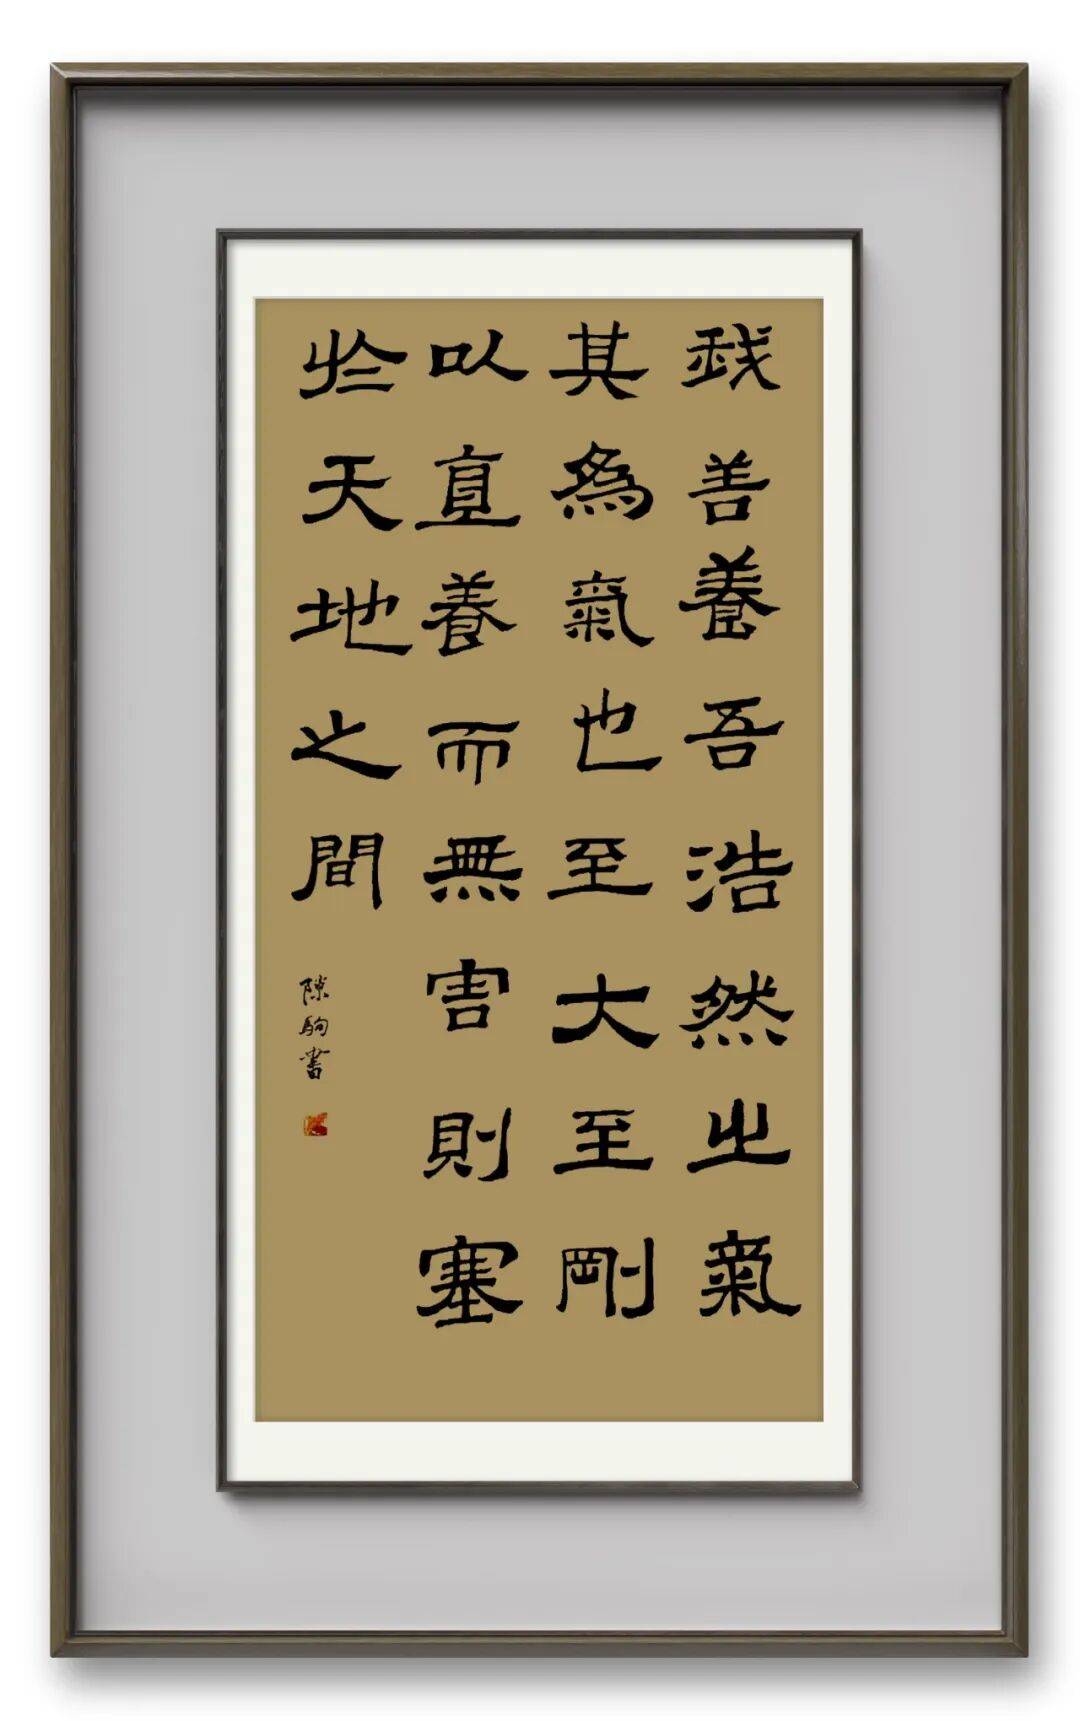 我善養吾浩然之氣
其為氣也至大至剛
以直養而無害則塞
於天地之間
隙駒書